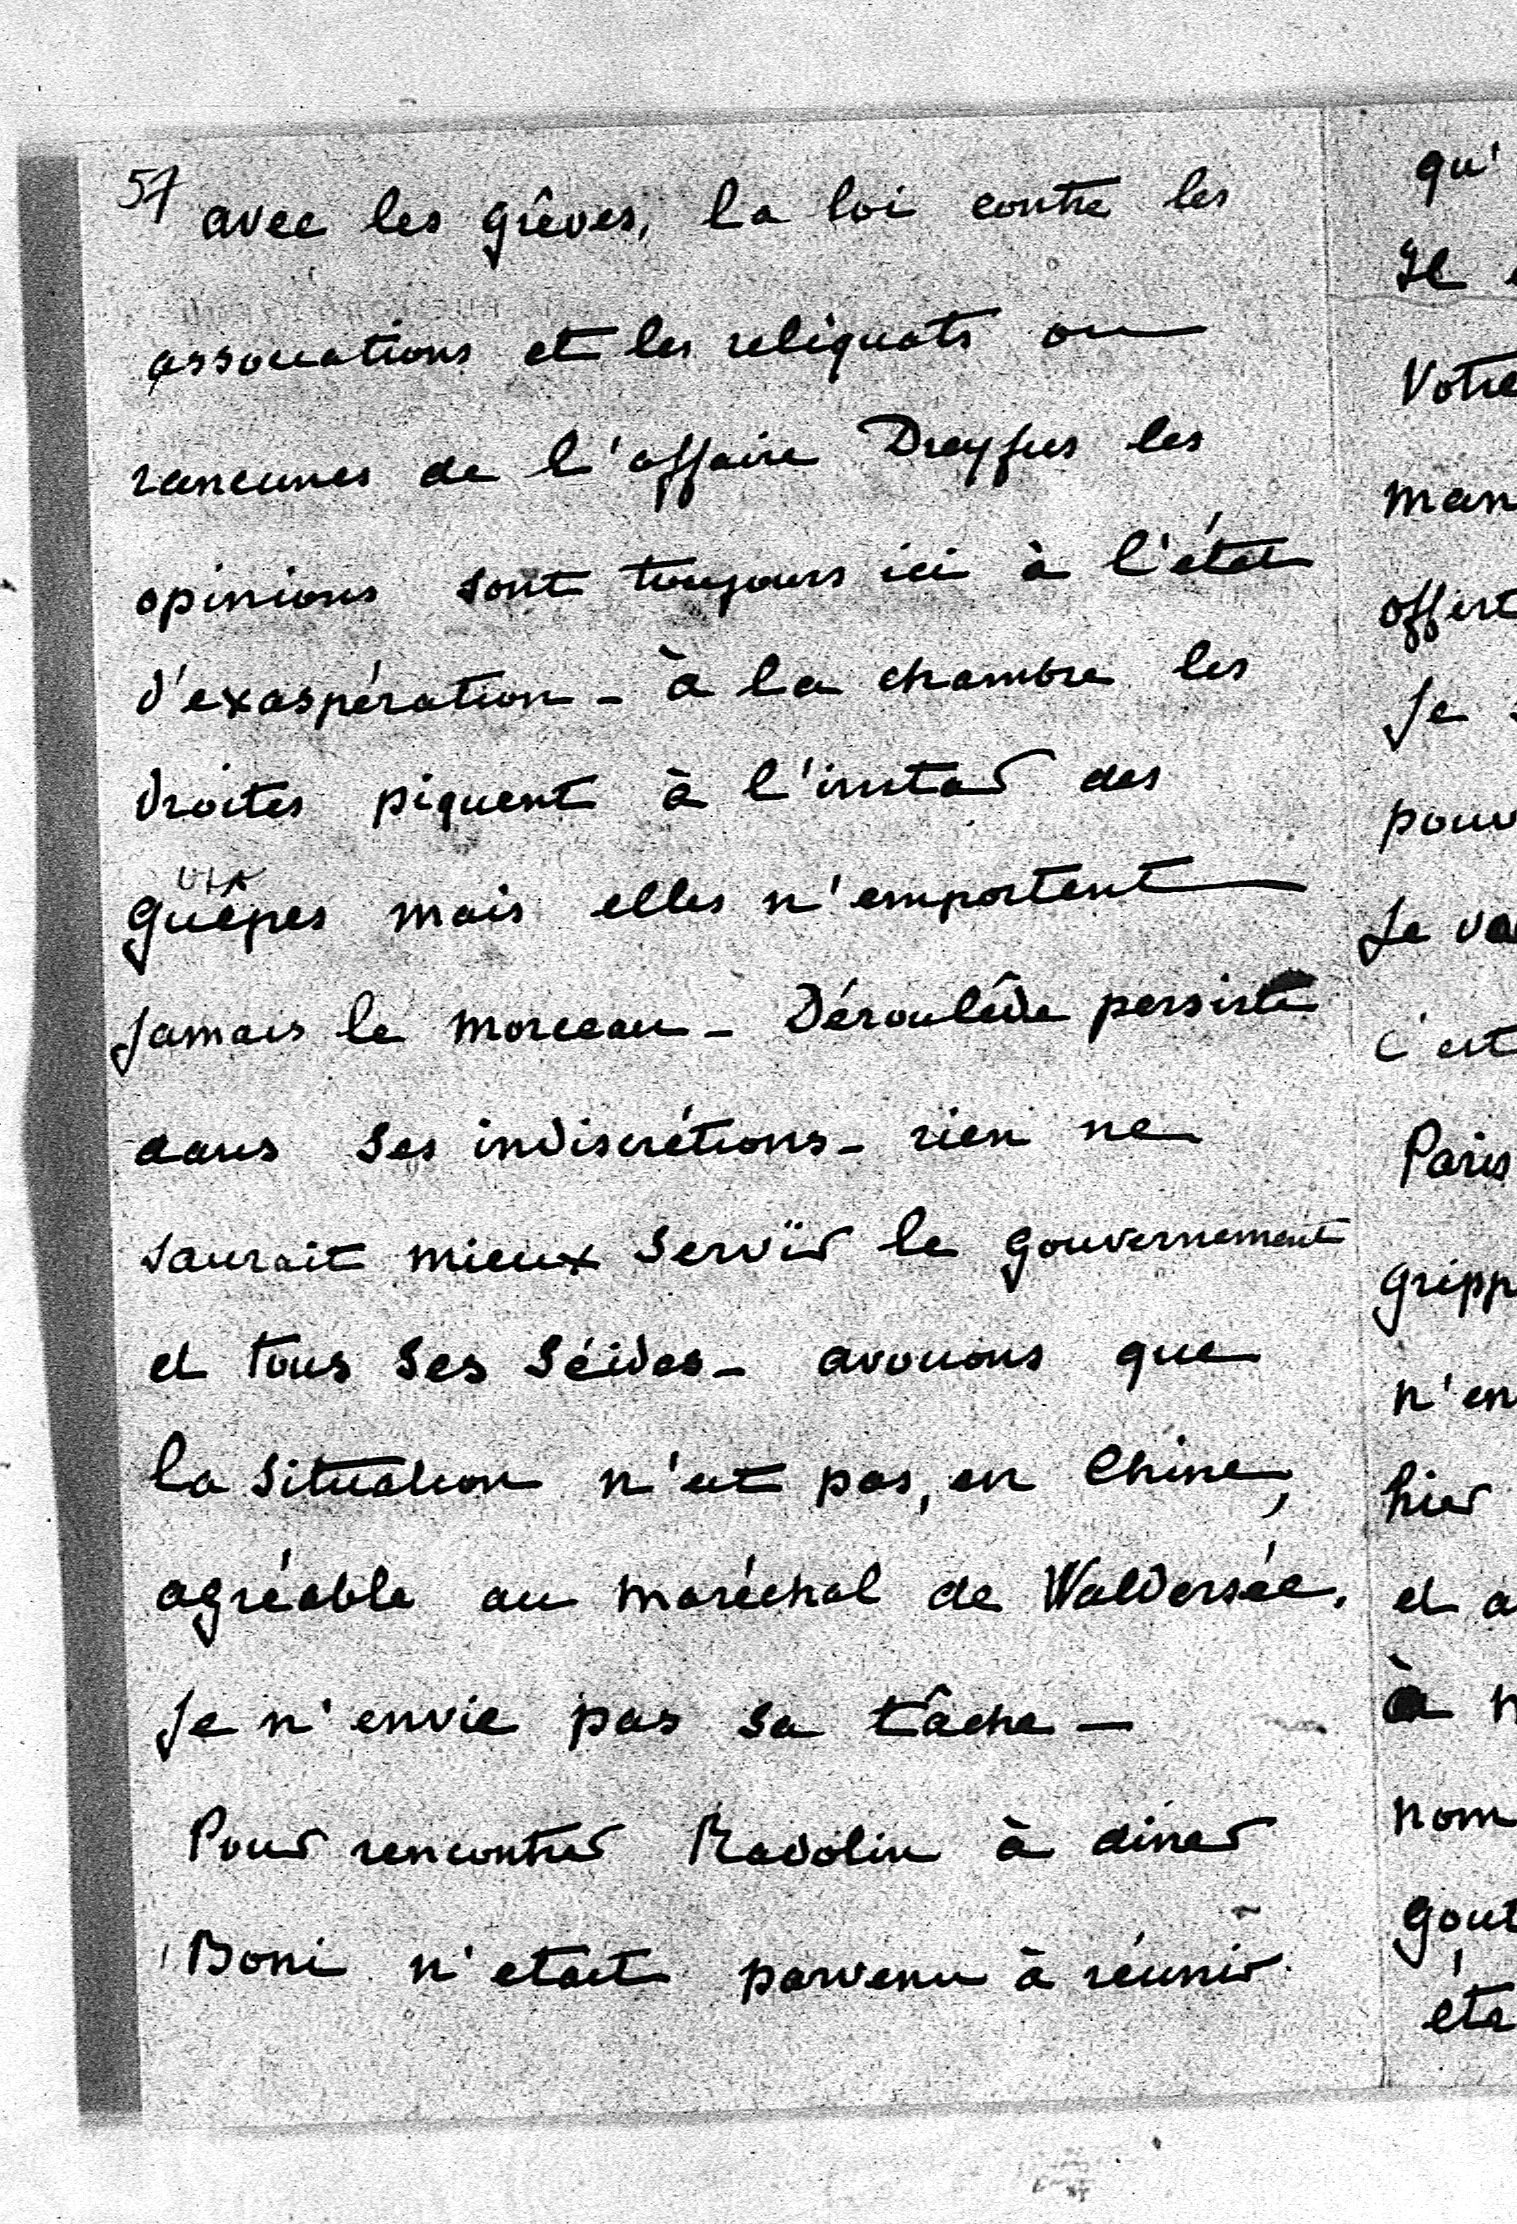 57
avec les grêves, la loi contre les
associations et les reliquats ou
rancunes de l'affaire Dreyfus les
opinions sont toujours ici à l'état
d'exaspération - à la chambre les
droites piquent à l'instar des
guêpes mais elles n'emportent
jamais le morceau - Déroulède persiste
dans ses indiscrétions - rien ne
saurait mieux servir le gouvernement
et tous ses séides - avouons que
la situation n'est pas, en Chine,
agréable au maréchal de Waldersée.
Je n'envie pas sa tâche -
Pour rencontrer Radolin à diner
Boni n'etait parvenu à réunir
qu'
Il
Votre
man
offert
Je
pouv
Je va
c'est
Paris
gripp
n'en
hier
et a
à
nom
gout
éta